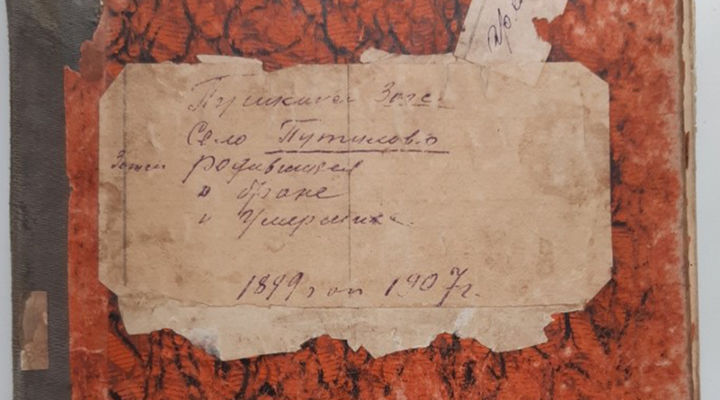 Пушкинск Загс.
Село Путилово
Записи родившихся
" браке
" Умерших.
1899 г по 1907 г.